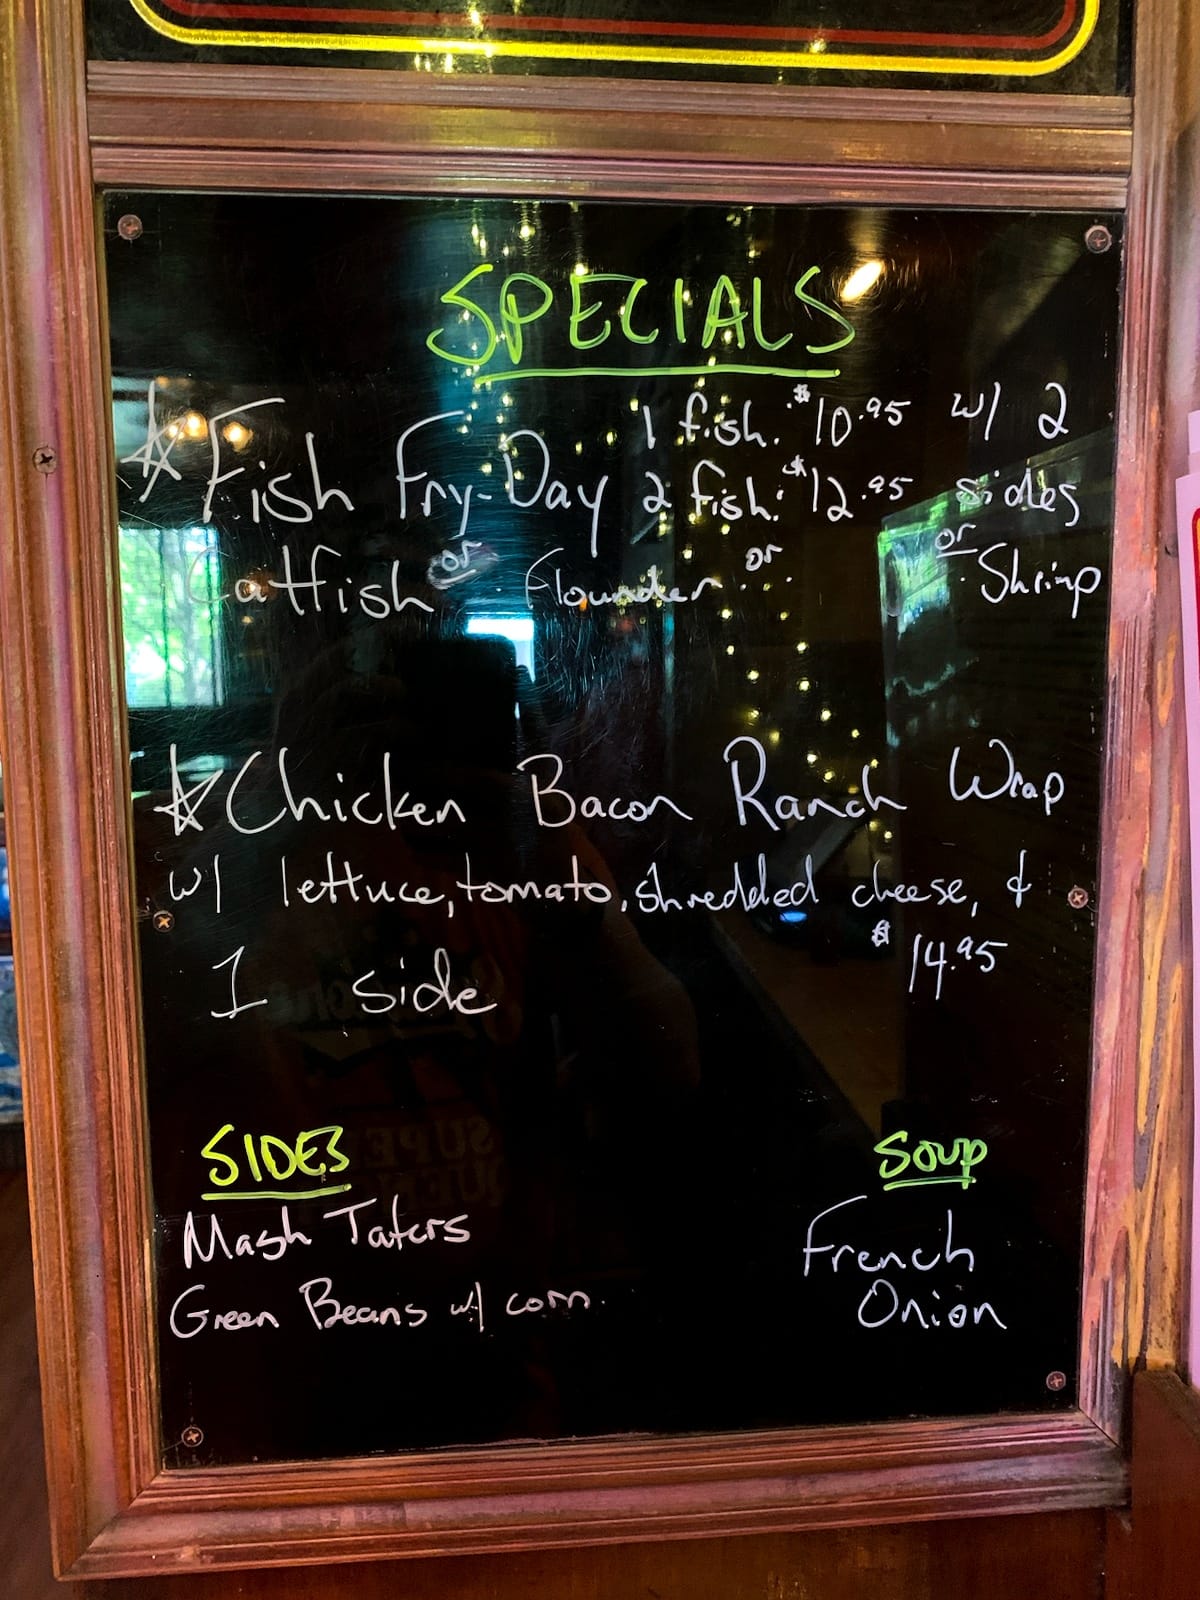 SPECIALS
1 fish: $10.95 w/ 2
☆Fish Fry-Day 2 fish: $12.95 sides
Catfish or Flounder or or Shrimp
☆Chicken Bacon Ranch Wrap
w/ lettuce, tomato, shredded cheese, &
1 side $14.95
SIDES
Mash Taters
Green Beans w/ corn
Soup
French
Onion